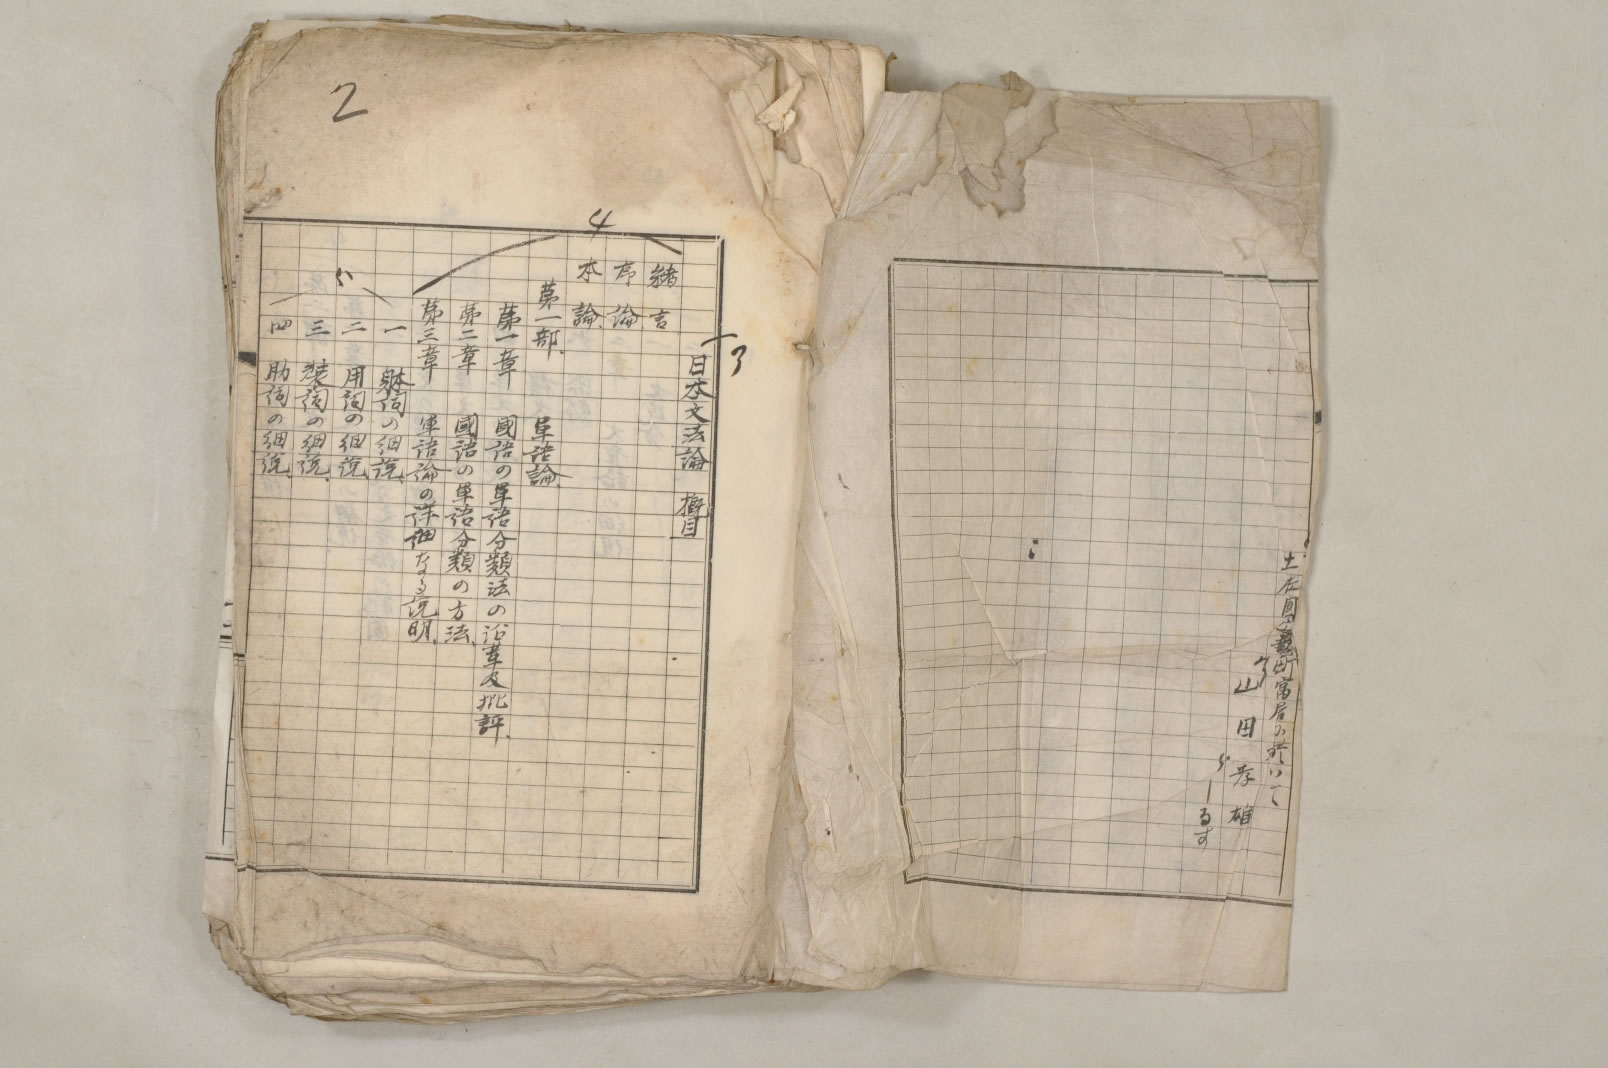 土佐國安藝町寓居に於いて
山田孝雄
しるす
2
3
日本文法論 概目
4
緒言
序論
本論、
第一部、單語論、
第一章 國語の單語分類法の沿革及批評、
第二章 國語の單語分類の方法、
第三章 單語論の詳細なる説明、
一 躰詞の細説、
二 用詞の細説、
三 装詞の細説、
四 助詞の細説、